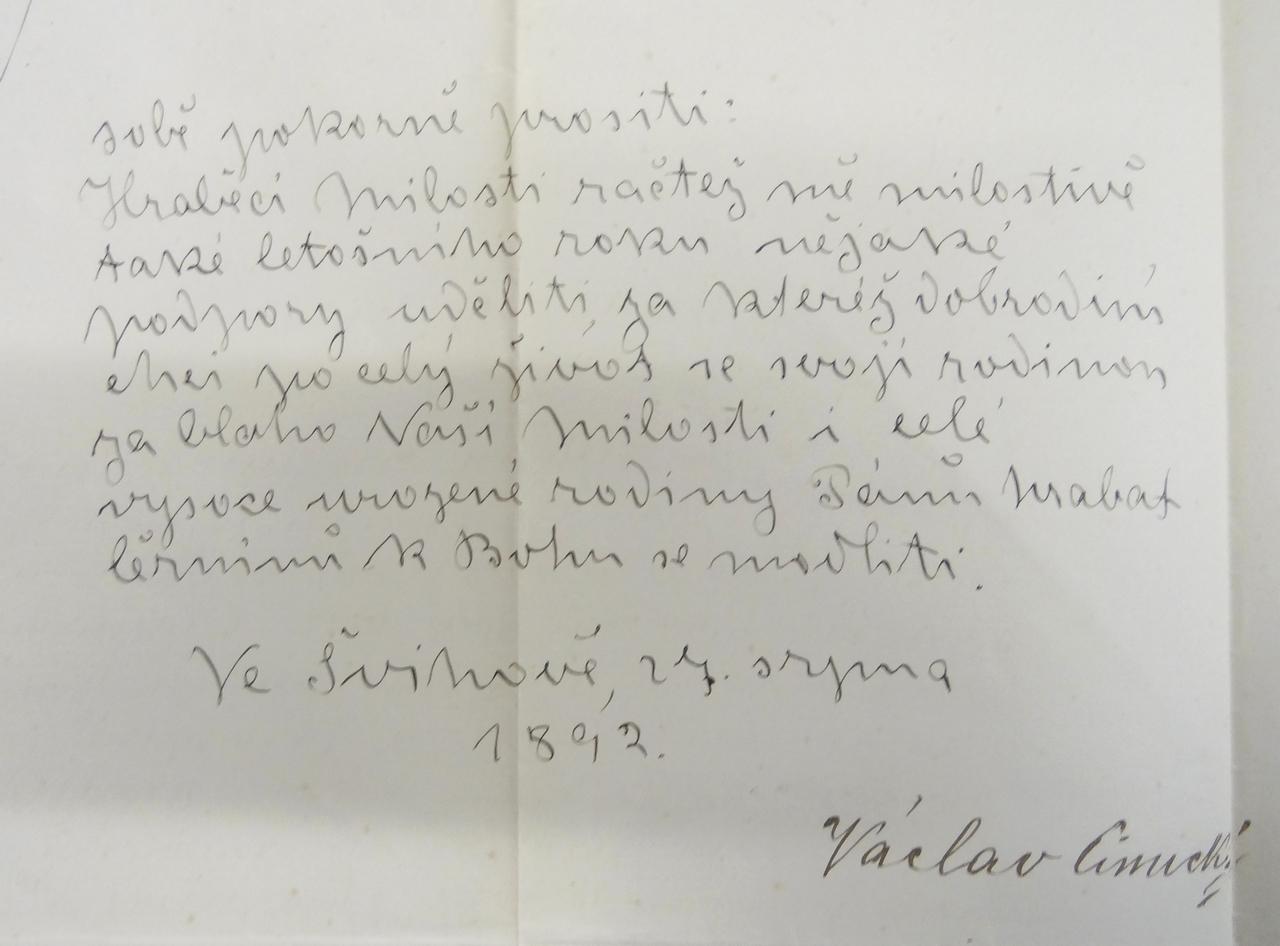 sobě pokorně prositi:
Hraběcí Milosti račtež mě milostivě
také letošního roku nějaké
podpory uděliti, za kteréž dobrodiní
chci po celý život se svojí rodinou
za blaho Vaší Milosti i celé
vysoce urozené rodiny Pánů hrabat
Černínů k Bohu se modliti.
Ve Švihově, srpna
1892.
Václav